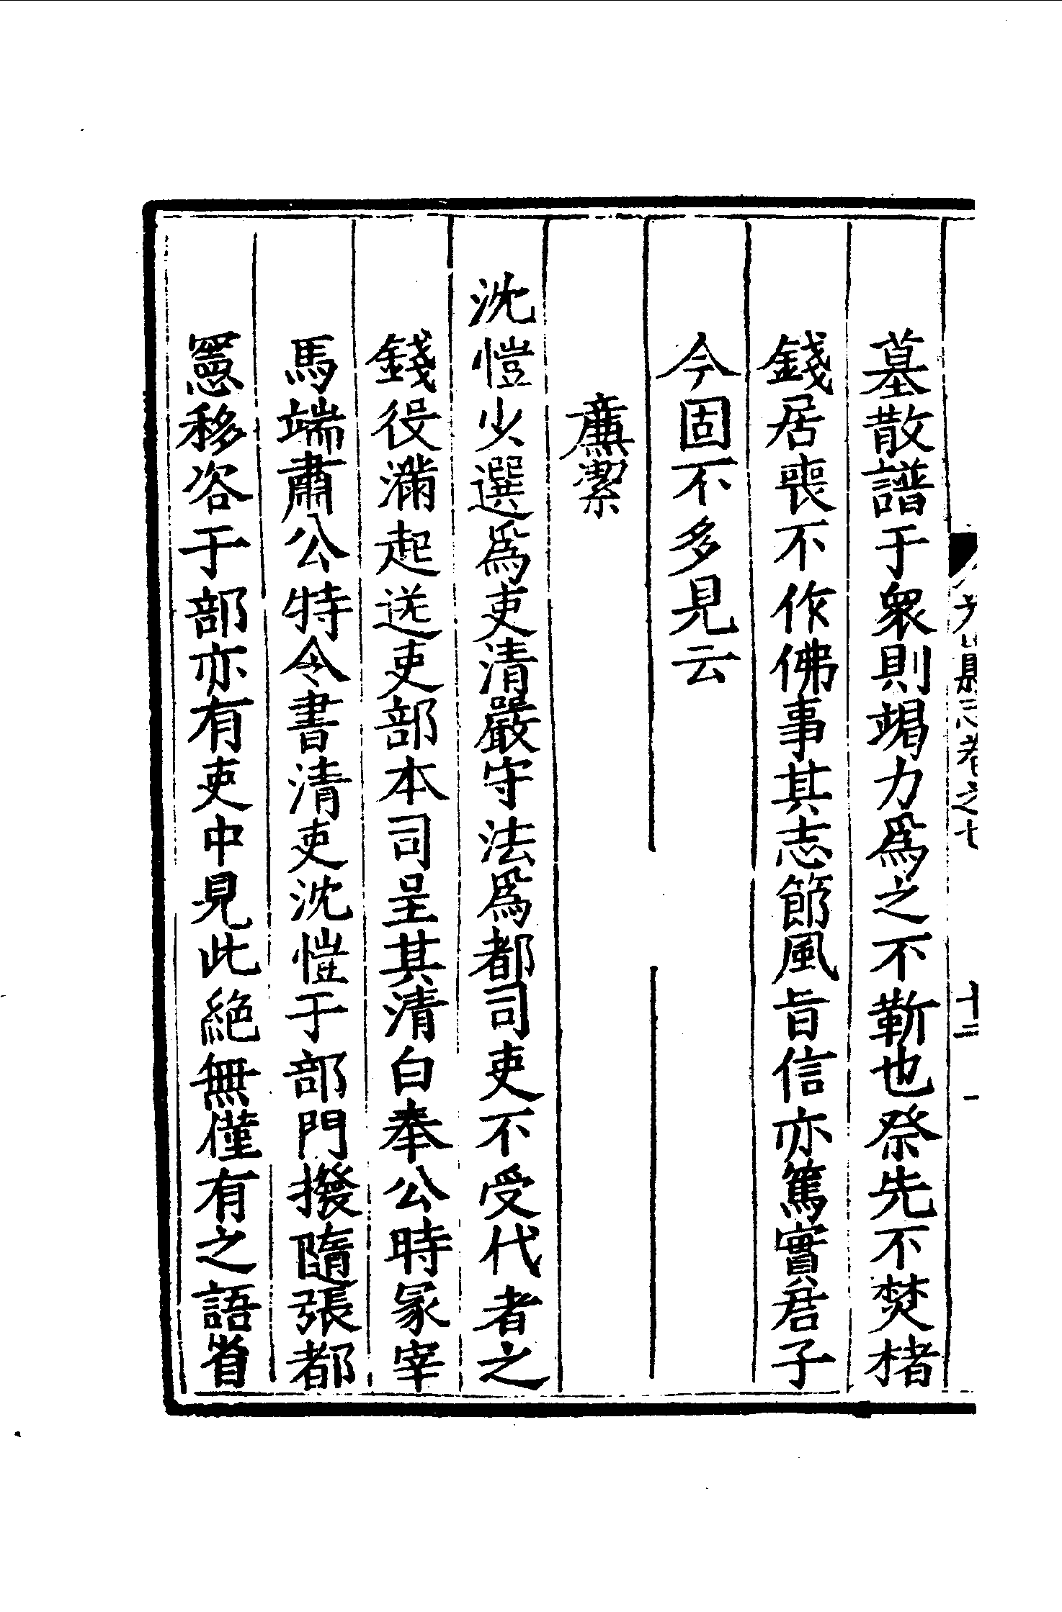 光山縣志卷之七 十二
墓散譜于衆則竭力爲之不靳也祭先不焚楮
錢居喪不作佛事其志節風旨信亦篤實君子
今固不多見云
廉潔
沈愷少選爲吏清嚴守法爲都司吏不受代者之
錢役滿起送吏部本司呈其清白奉公時冡宰
馬端肅公特令書清吏沈愷于部門撥隨張都
憲移咨于部亦有吏中見此絶無僅有之語省